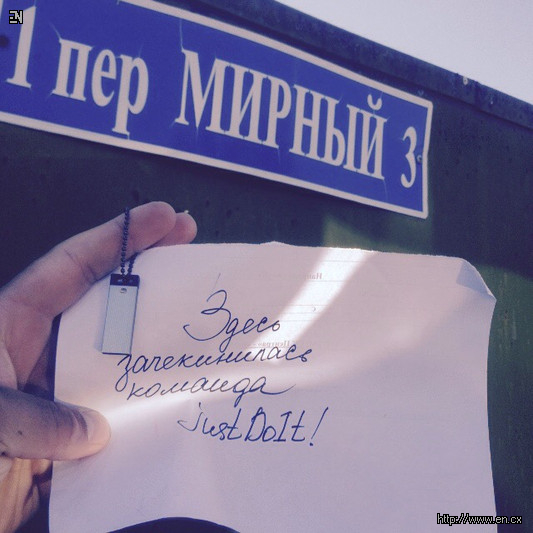 EN
1 пер МИРНЫЙ 3
Здесь
зачекинилась
команда
justDoIt!
http://www.en.cx